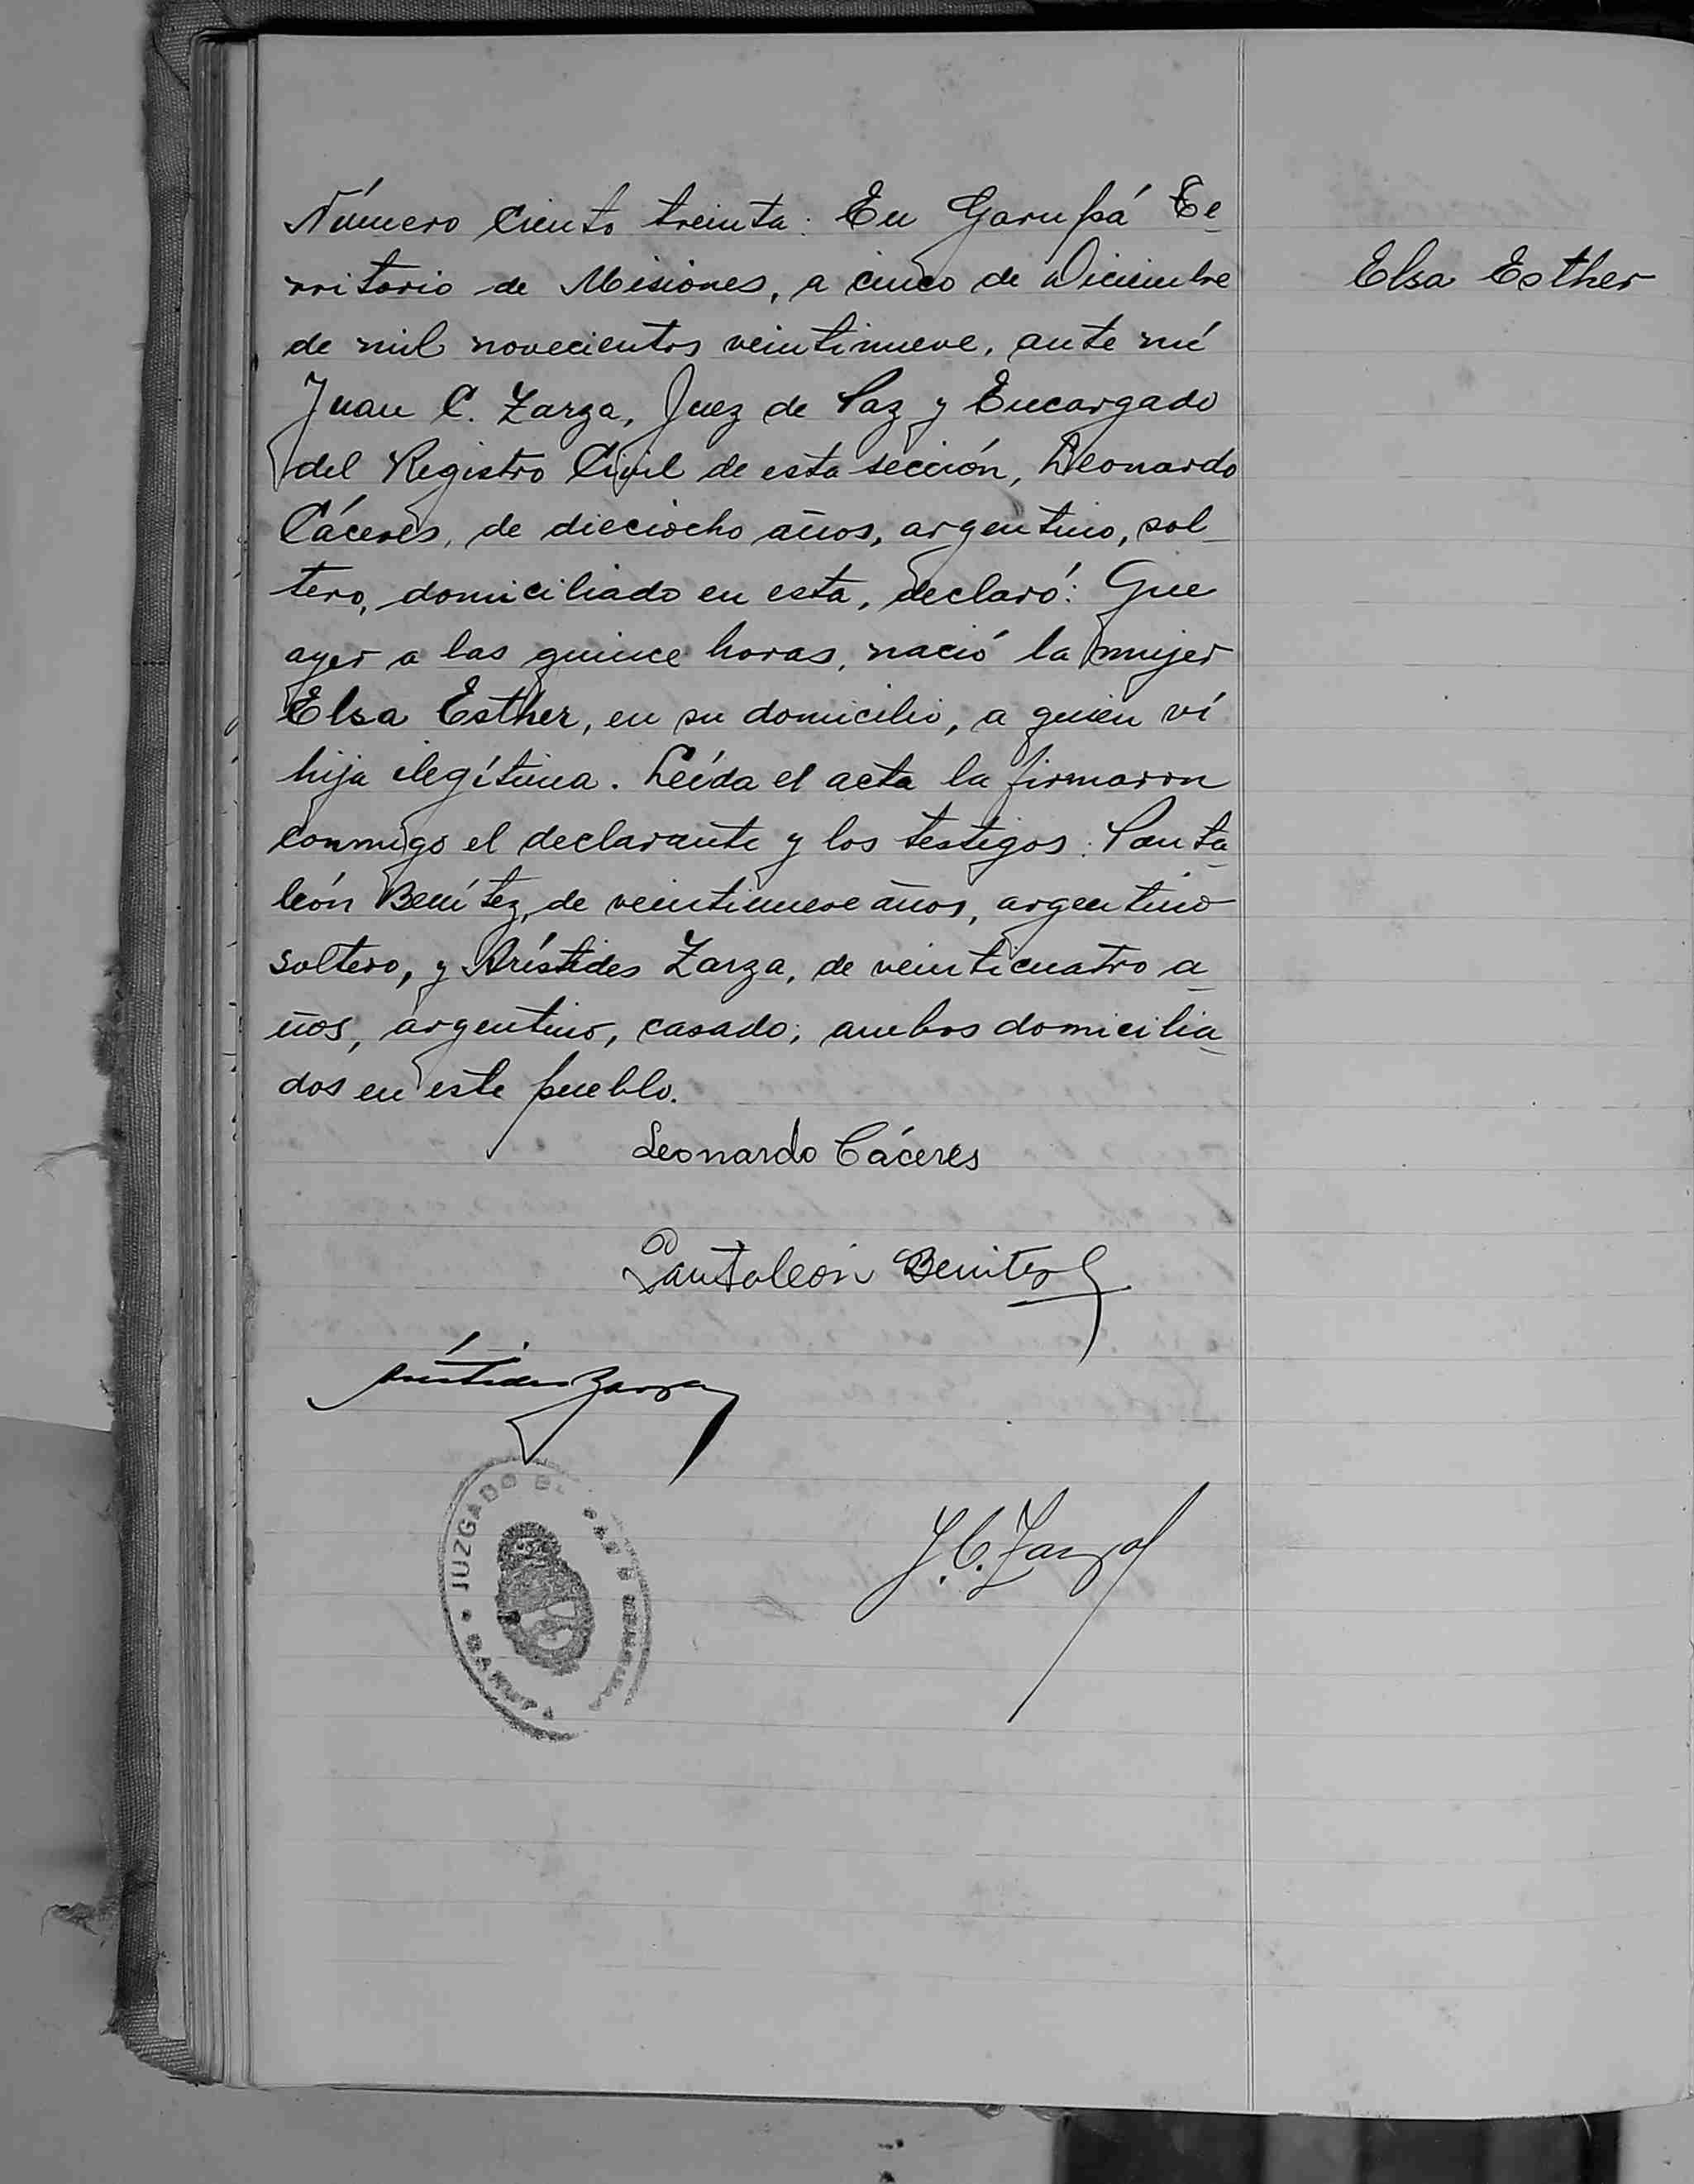 Número Ciento treinta: En Garupá Te-
rritorio de Misiones, a cinco de Diciembre
de mil novecientos veintinueve, ante mí
Juan C. Zarza, Juez de Paz y Encargado
del Registro Civil de esta sección, Leonardo
Cáceres, de dieciocho años, argentino, sol-
tero, domiciliado en esta, declaró: Que
ayer a las quince horas, nació la mujer
Elsa Esther, en su domicilio, a quien ví
hija ilegítima. Leída el acta la firmaron
conmigo el declarante y los testigos: Panta-
león Benítez, de veintinueve años, argentino
soltero, y Arístides Zarza, de veinticuatro a-
ños, argentino, casado; ambos domicilia-
dos en este pueblo.
Elsa Esther
Leonardo Cáceres
Pantaleón Benitez
Arístides Zarza
JUZGADO
J. C. Zarza